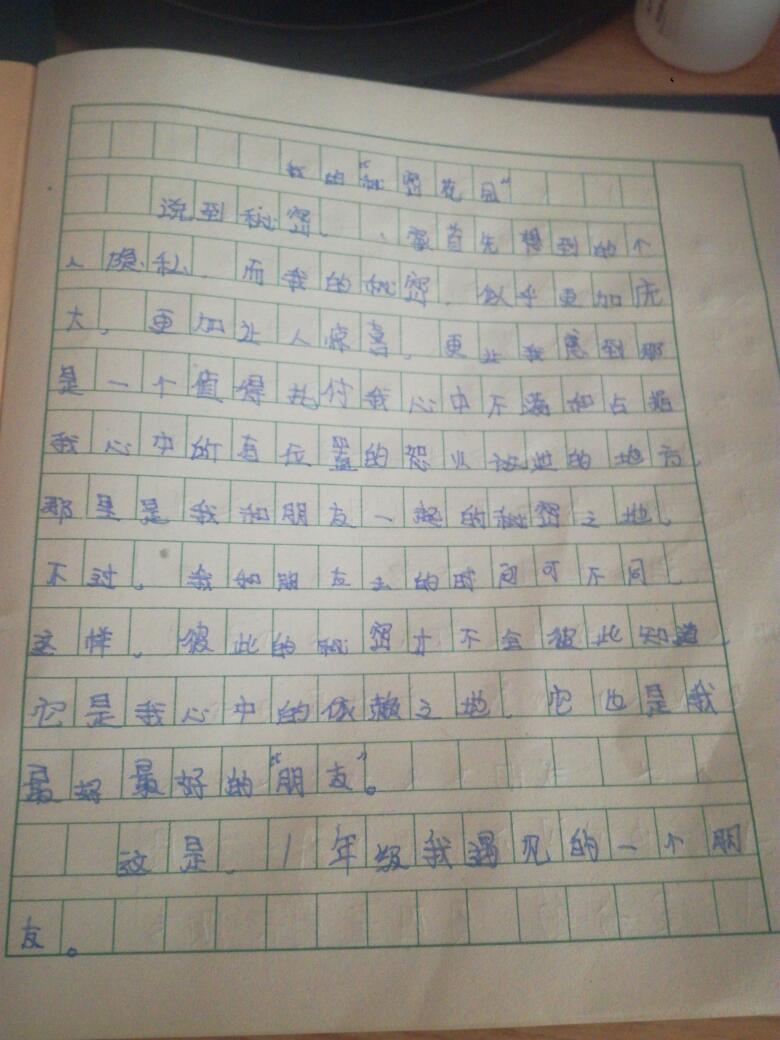 我的“秘密花园”
说到秘密，首先想到的个
人隐私，而我的秘密，似乎更加庞
大，更加让人惊喜，更让我感到那
是一个值得托付我心中不满和占据
我心中所有位置的怨火的地方，
那里是我和朋友一起的秘密之地，
不过，我和朋友去的时间可不同，
这样，彼此的秘密才不会彼此知道，
它是我心中的依赖之地，它也是我
最好最好的“朋友”。
这是，1年级我遇见的一个朋
友。